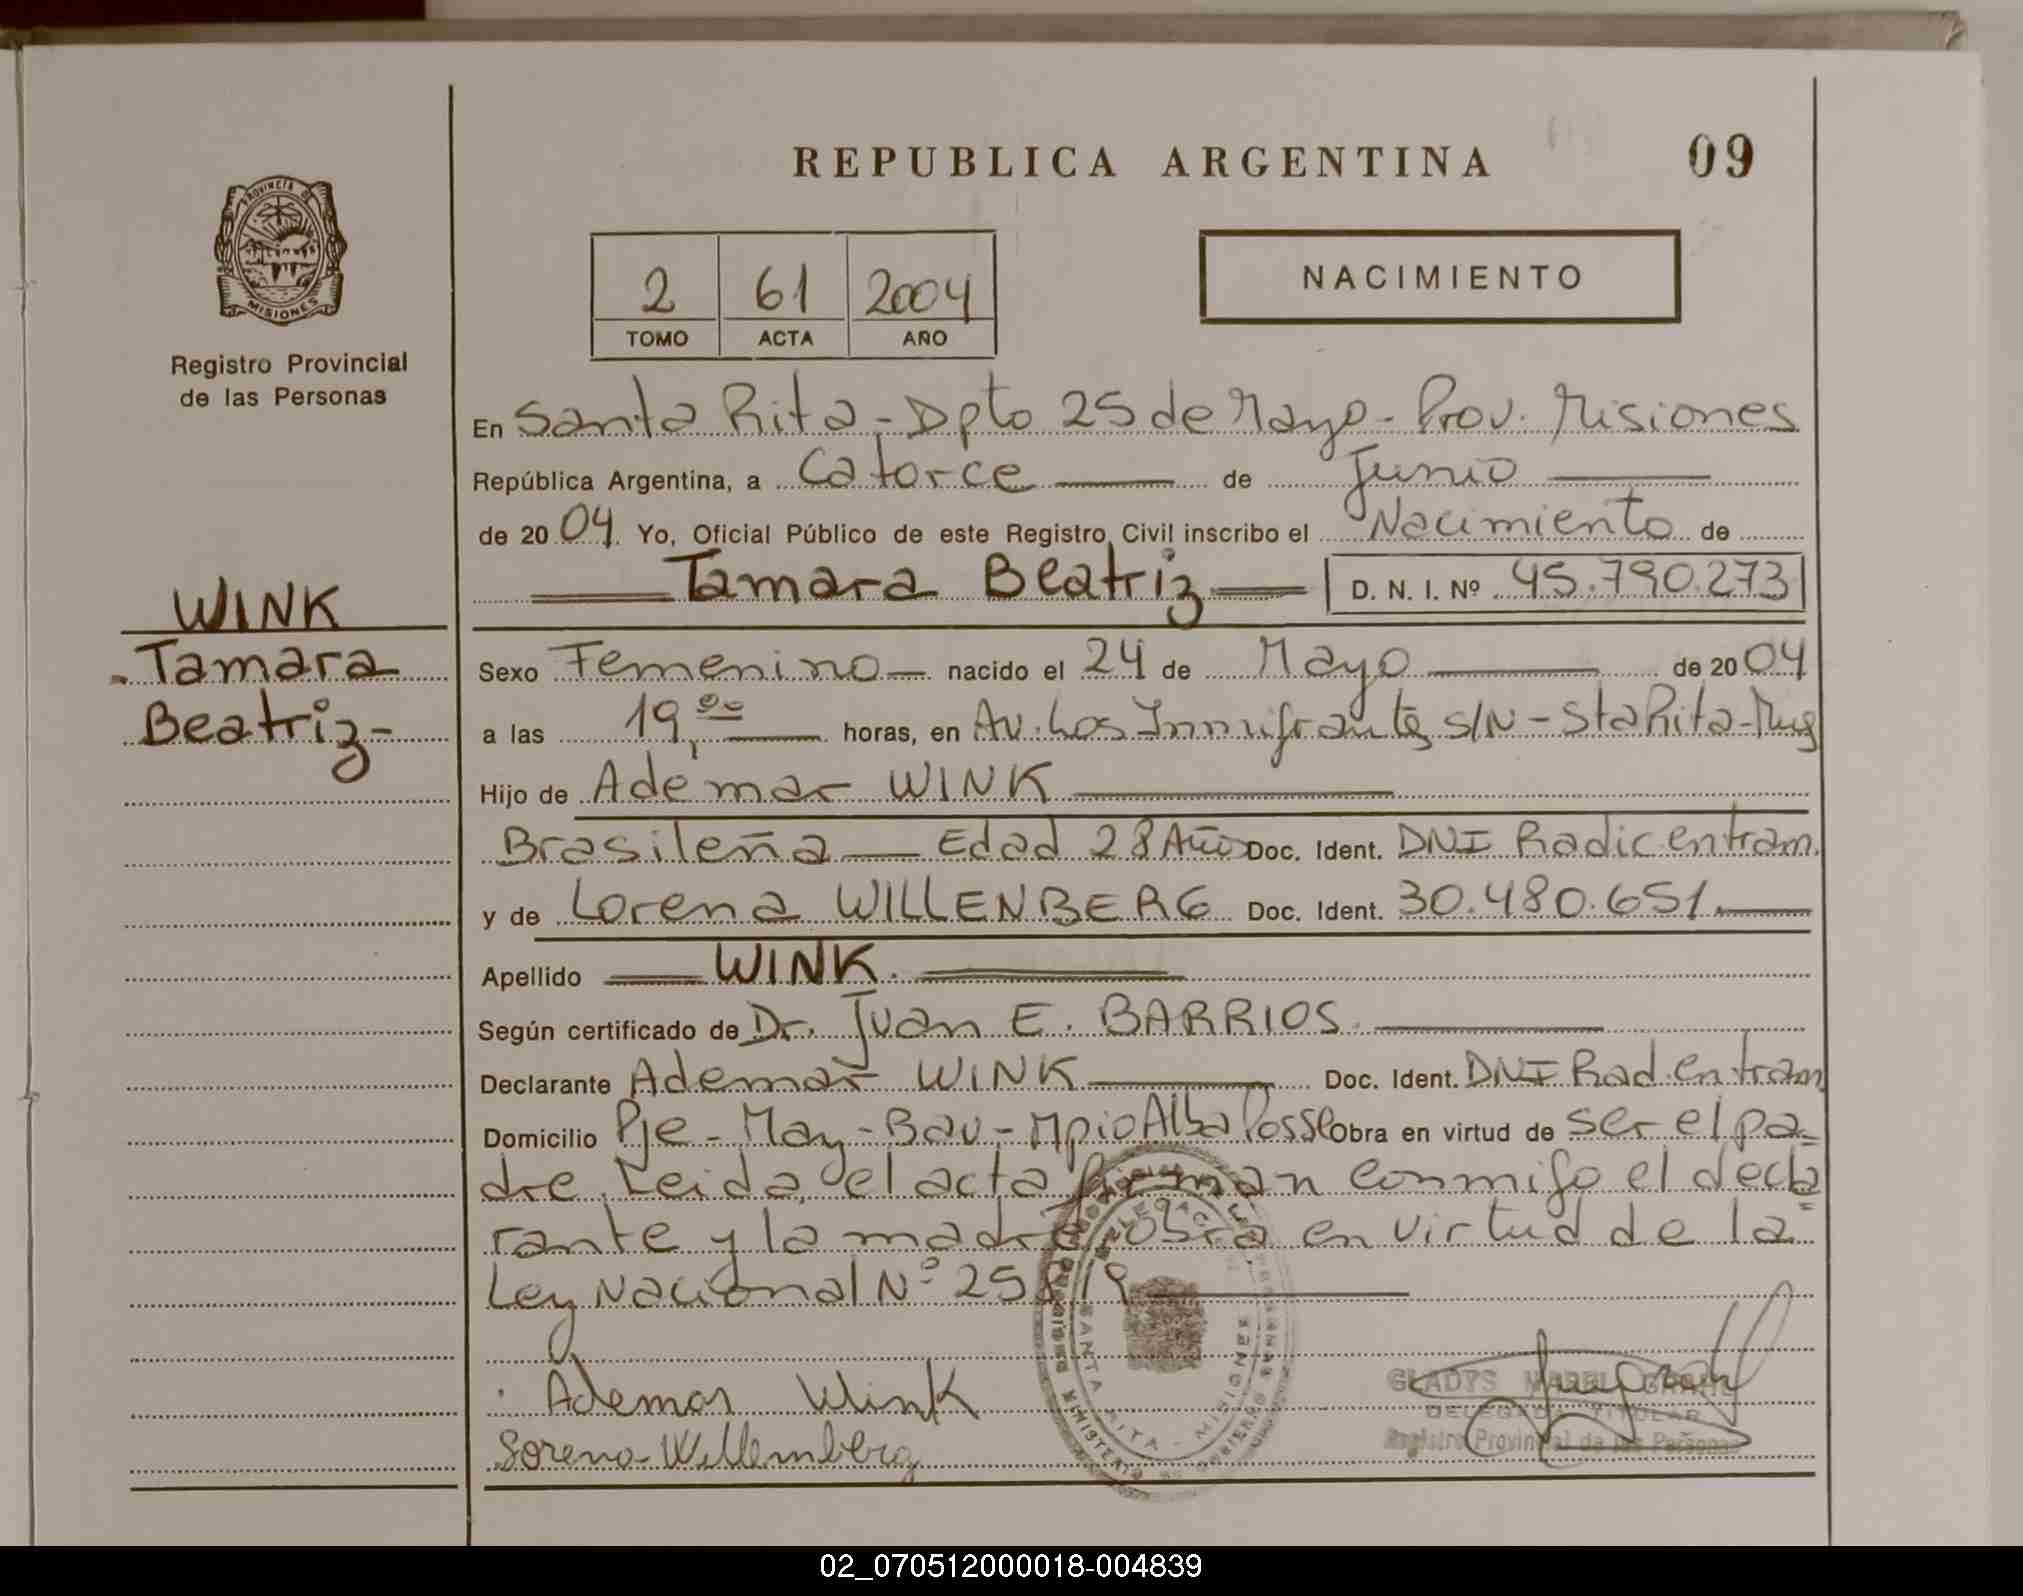 REPUBLICA ARGENTINA 09
PROVINCIA DE
MISIONES
Registro Provincial
de las Personas
2 61 2004
TOMO ACTA AÑO
NACIMIENTO
En Santa Rita - Dpto 25 de Mayo - Prov. Misiones
República Argentina, a Catorce de Junio
de 2004. Yo, Oficial Público de este Registro Civil inscribo el Nacimiento de
Tamara Beatriz D. N. I. Nº 45.790.273
WINK
Tamara
Beatriz-
Sexo Femenino nacido el 24 de Mayo de 2004
a las 19,00 horas, en Av. Los Inmigrantes s/N - Sta Rita -
Hijo de Ademar WINK
Brasileña Edad 28 Años Doc. Ident. DNI Radic entram.
y de Lorena WILLENBERG Doc. Ident. 30.480.651.
Apellido WINK.
Según certificado de Dr. Juan E. BARRIOS.
Declarante Ademar WINK Doc. Ident. DNI Rad. en tram
Domicilio Pje - May - Bav - Mpio Alba Posse Obra en virtud de ser el pa=
dre. Leida el acta firman conmigo el decla
rante y la madre obra en virtud de la
Ley Nacional Nº 25819
Ademar Wink
Lorena Willemberg
SANTA RITA - MISIONES
MINISTERIO DE GOBIERNO
GLADYS MABEL
DELEGADA TITULAR
Registro Provincial de las Personas
02_070512000018-004839